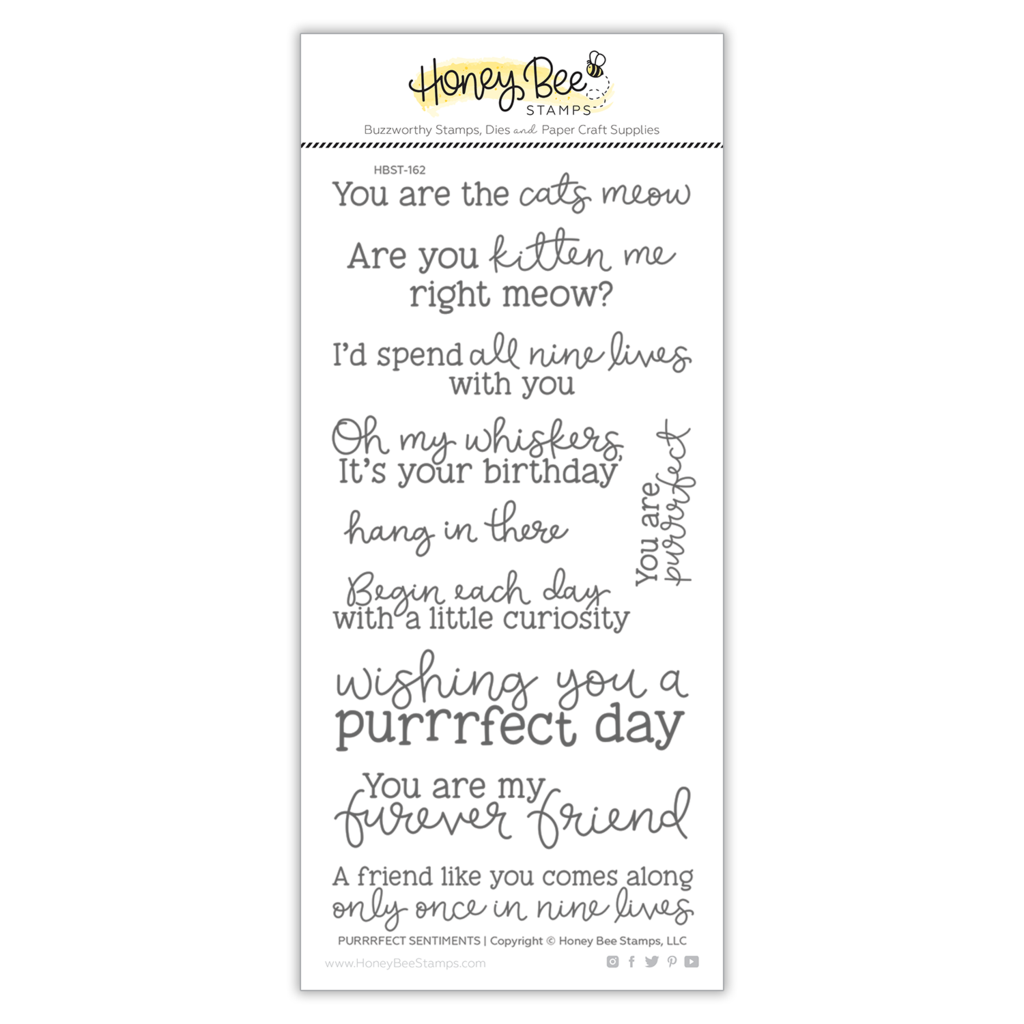 Honey Bee
STAMPS
Buzzworthy Stamps, Dies and Paper Craft Supplies
HBST-162
You are the cats meow
Are you kitten me
right meow?
I'd spend all nine lives
with you
Oh my whiskers,
It's your birthday
You are
purrrfect
hang in there
Begin each day
with a little curiosity
wishing you a
purrrfect day
You are my
furever friend
A friend like you comes along
only once in nine lives
PURRRFECT SENTIMENTS | Copyright © Honey Bee Stamps, LLC
www.HoneyBeeStamps.com